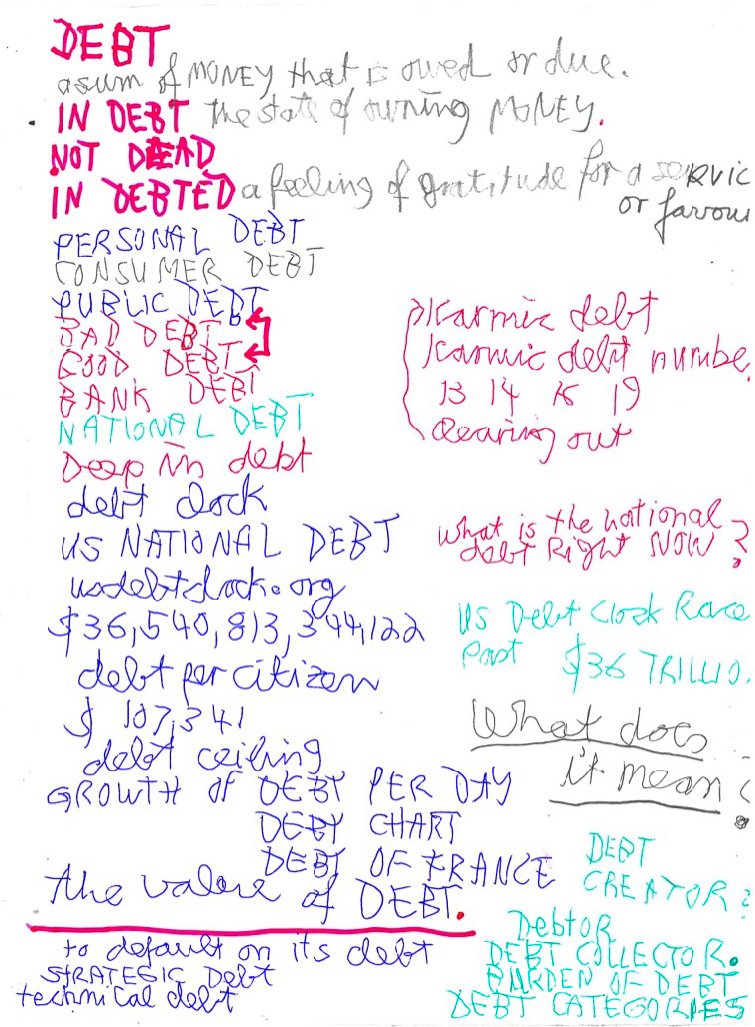 DEBT
a sum of MONEY that is owed or due.
IN DEBT the state of owning MONEY.
NOT DEAD
IN DEBTED a feeling of gratitude for a servic
or favou
PERSONAL DEBT
CONSUMER DEBT
PUBLIC DEBT
BAD DEBT
GOOD DEBT
BANK DEBT
NATIONAL DEBT
Deep in debt
debt clock
US NATIONAL DEBT
usdebtclock.org
$36,540,813,344,122
debt per citizen
$ 107,341
debt ceiling
GROWTH OF DEBT PER DAY
DEBT CHART
DEBT OF FRANCE
the value of DEBT.
to default on its debt
STRATEGIC Debt
technical debt
Karmic debt
Karmic debt numbe
13 14 16 19
Clearing out
What is the national
debt Right NOW ?
US Debt Clock Race
Past $36 TRILLIO.
What does
it mean ?
DEBT
CREATOR?
DebtoR
DEBT COLLECTOR.
BURDEN OF DEBT
DEBT CATEGORIES